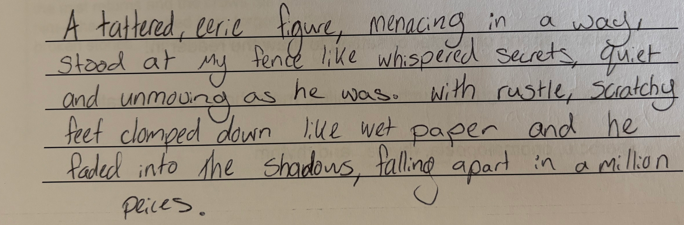 A tattered, eerie figure, menacing in a way,
stood at my fence like whispered secrets, quiet
and unmoving as he was. With rustle, scratchy
feet clomped down like wet paper and he
faded into the shadows, falling apart in a million
peices.